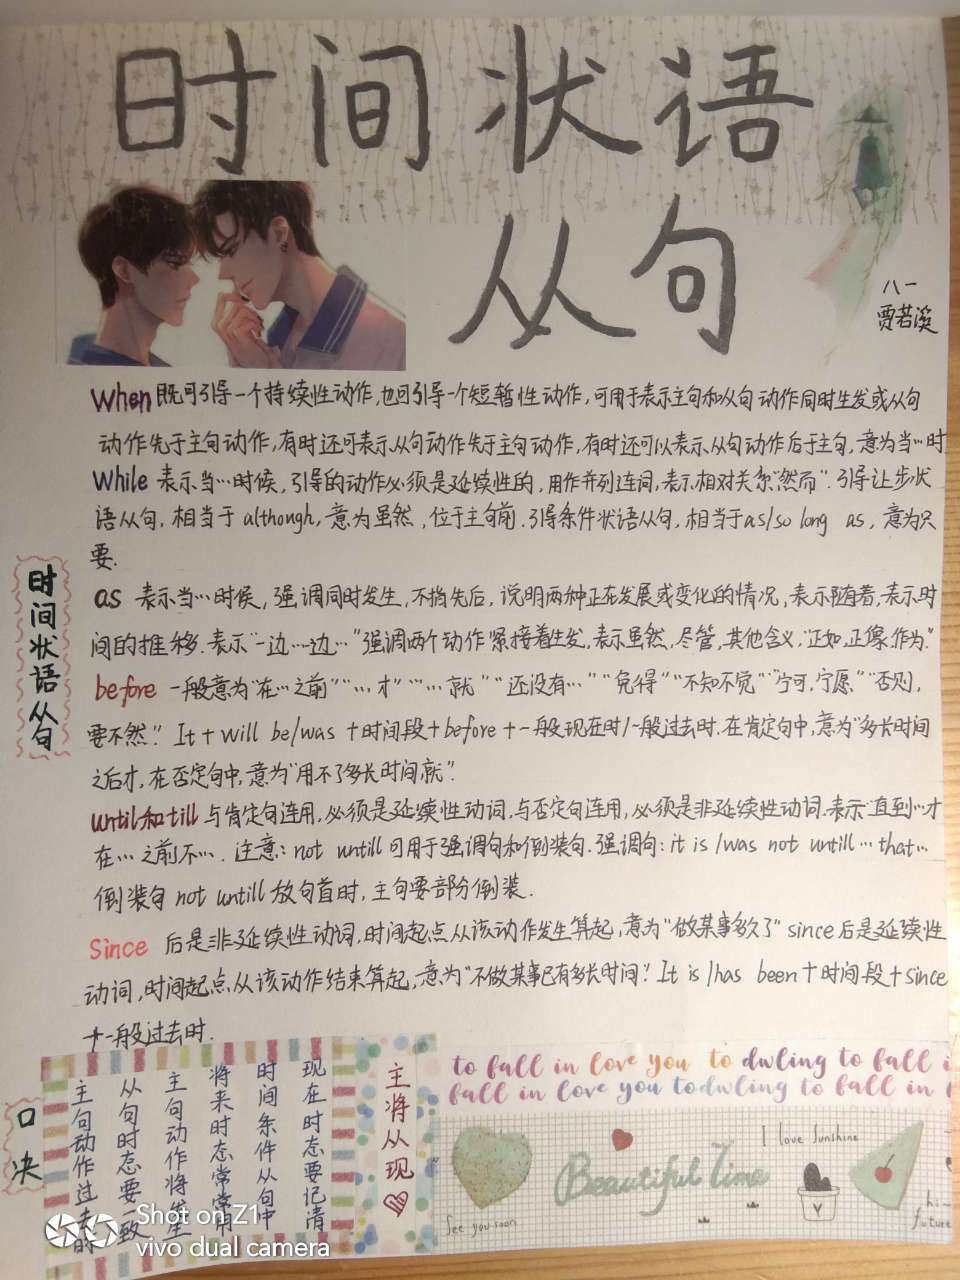 时间状语
从句
八一
贾若溪
when 既可引导一个持续性动作,也可引导一个短暂性动作,可用于表示主句和从句动作同时生发或从句
动作先于主句动作,有时还可表示从句动作先于主句动作,有时还可以表示从句动作后于主句,意为当…时
While 表示当…时候,引导的动作必须是延续性的,用作并列连词,表示相对关系“然而”.引导让步状
语从句,相当于 although,意为虽然,位于主句前.引导条件状语从句,相当于as/so long as,意为只
要.
as 表示当…时候,强调同时发生,不指先后,说明两种正在发展或变化的情况,表示随着,表示时
间的推移.表示“一边…一边…”强调两个动作紧接着生发,表示虽然,尽管,其他含义,“正如,正像,作为.”
before 一般意为“在…之前”“…才”“…就”“还没有…”“免得”“不知不觉”“宁可,宁愿,”“否则,
要不然.” It + will be/was +时间段+before +一般现在时/一般过去时.在肯定句中,意为“多长时间
之后才,在否定句中,意为“用不了多长时间就”.
until和till 与肯定句连用,必须是延续性动词.与否定句连用,必须是非延续性动词.表示“直到…才
在…之前不….注意: not untill 可用于强调句和倒装句.强调句: it is /was not untill…that…
倒装句 not untill 放句首时,主句要部分倒装.
Since 后是非延续性动词,时间起点从该动作发生算起,意为“做某事多久了” since后是延续性
动词,时间起点从该动作结束算起,意为“不做某事已有多长时间.” It is /has been +时间段+since
+一般过去时.
时间状语从句
口决
现在时态要记清
时间条件从句中
将来时态常常用
主句动作将发生
从句时态要一致
主句动作过去时
主将从现
to fall in love you to dwling to fall i
fall in love you todwling to fall in
I love Sunshine
Beautiful Time
See you soon
hi~
future
Shot on Z1
vivo dual camera